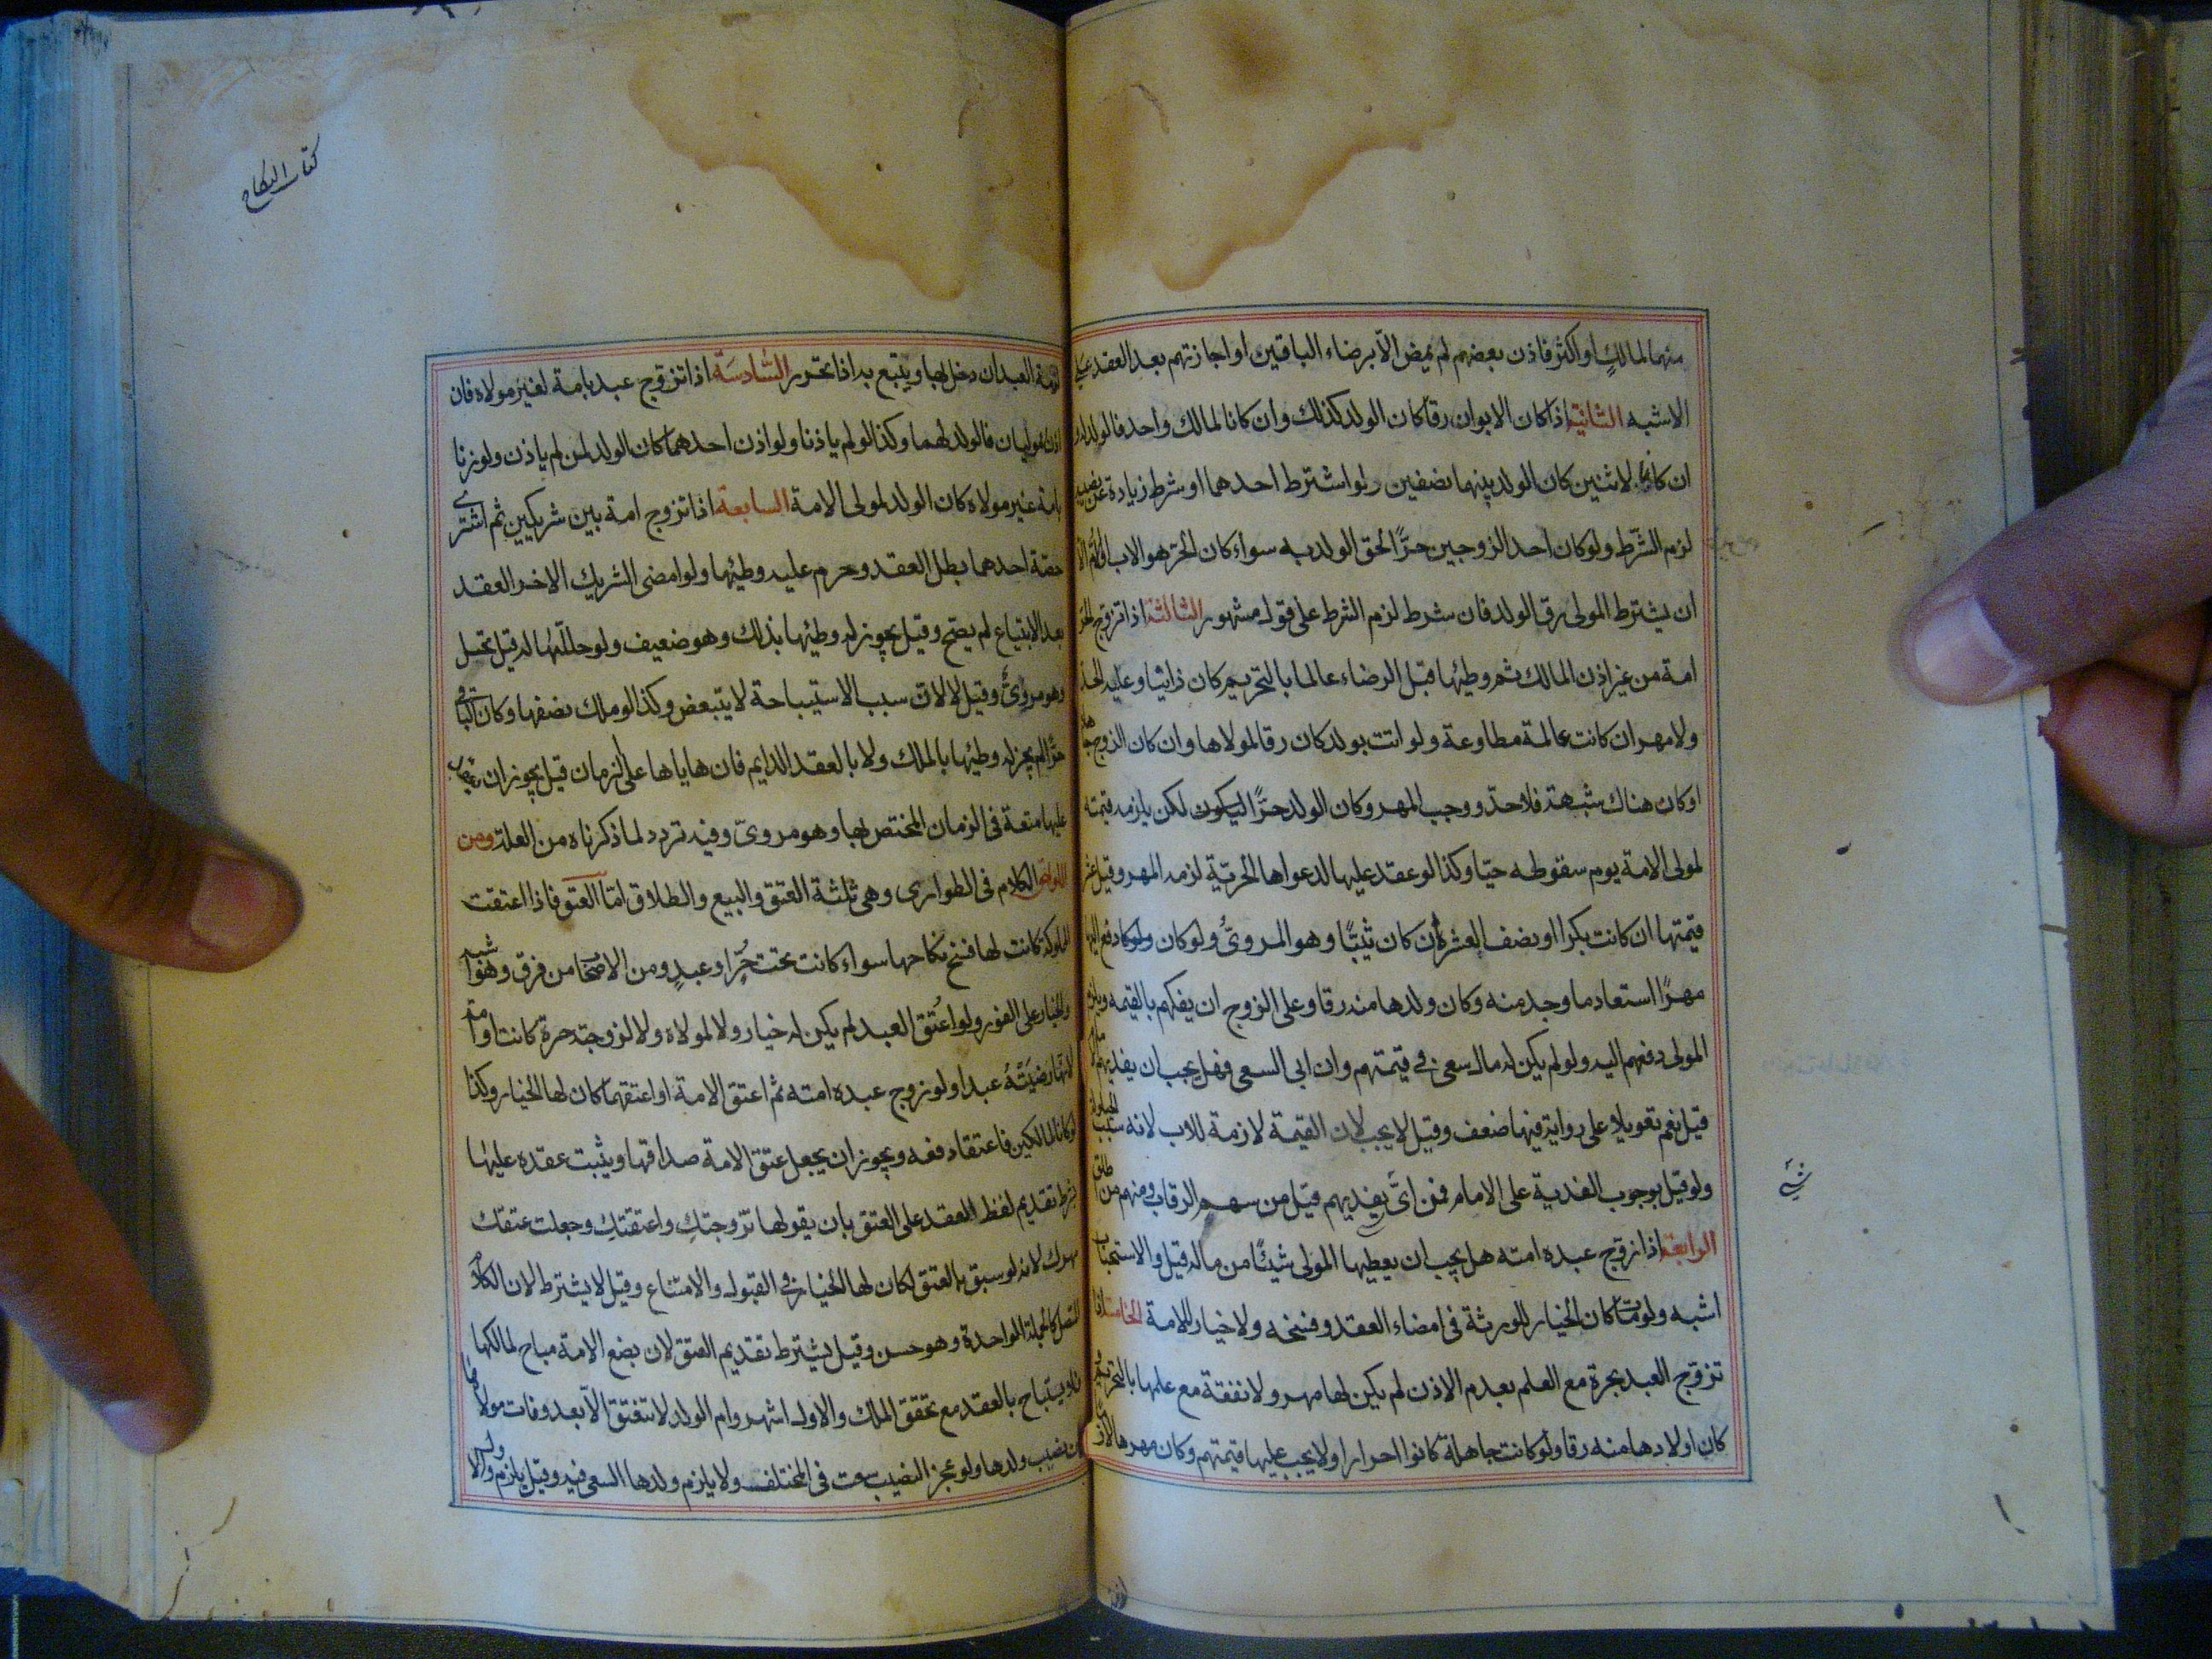 منهما لمالكٍ او اكثر فاذن بعضهم لم يمض الّا برضاء الباقين او اجازتهم بعد العقد على
الاشبه الثانية اذا كان الابوان رقا كان الولد كذلك وان كانا لمالك واحد فالولد له و
ان كانا لاثنين كان الولد بينهما نصفين ولو اشترط احدهما او شرط زيادة عن نصيبه
لزم الشّرط ولو كان احد الزوجين حرًّا لحق الولد به سواء كان الحرّ هو الاب او الامّ الّا
ان يشترط المولى رق الولد فان شرط لزم الشرط على قول مشهور الثالثة اذا تزوج الحرّ
امة من غير اذن المالك ثم وطئها قبل الرضاء عالما بالتحريم كان زانيا وعليه الحدّ
ولا مهر ان كانت عالمة مطاوعة ولو اتت بولد كان رقا لمولاها وان كان الزوج جاهلا
او كان هناك شبهة فلا حدّ ووجب المهر وكان الولد حرًّا ليكون لكن يلزمه قيمته
لمولى الامة يوم سقوطه حيّا وكذا لو عقد عليها لدعواها الحُرّيّة لزمه المهر وقيل عشر
قيمتها ان كانت بكرا او نصف العشر ان كان ثيّبًا وهو المروىُّ ولو كان ولو كا دفع اليها
مهرًا استعاد ما وجد منه وكان ولدها منه رقا وعلى الزوج ان يفكهم بالقيمه ويلزم
المولى دفعهم اليه ولو لم يكن له مال سعى فى قيمتهم وان ابى السعى فهل يجب ان يفديهم
قيل نعم تعويلا على رواية فيها ضعف وقيل لا يجب لان القيمة لازمة للاب لانه سبب
ولو قيل بوجوب الفدية على الامام فمن اىّ يفديهم قيل من سهم الرقاب ومنهم من اطلق
الرابعة اذا زوّج عبده امته هل يجب ان يعطيها المولى شيئًا من ماله قيل والاستحباب
اشبه ولو مات كان الخيار للورثة فى امضاء العقد وفسخه ولا خيار للامة الخامسة اذا
تزوّج العبد بحرة مع العلم بعدم الاذن لم يكن لها مهر ولا نفقة مع علمها بالتحريم
كان اولادها منه رقا ولو كانت جاهلة كانوا احرارا ولا يجب عليها قيمتهم وكان مهرها لازما
شئ
كتاب النكاح
لذمة العبد ان دخل بها ويتبع به اذا تحرر السّادسَة اذا تزوّج عبد بامة لغير مولاه فان
اذن الموليان فالولد لهما وكذا لو لم ياذنا ولو اذن احدهما كان الولد لمن لم ياذن ولو زنا
بامة غير مولاه كان الولد لمولى الامة السابعة اذا تزوج امة بين شريكين ثم اشترى
حصّة احدهما بطل العقد وحرم عليه وطيئها ولو امضى الشريك الاخر العقد
بعد الابتياع لم يصح وقيل يجوز له وطيئها بذلك وهو ضعيف ولو حلّلها له قيل تحل
وهو مروىٌّ وقيل لا لان سبب الاستيباحة لا يتبعض وكذا لو ملك نصفها وكان الباقى
حرًّا لم يجز له وطيئها بالملك ولا بالعقد الدايم فان هاياها على الزمان قيل يجوز ان يعقد
عليها متعة فى الزمان المختص بها وهو مروىّ وفيه تردد لما ذكرناه من العلة ومن
اللواحق الكلام فى الطوارى وهى ثلثة العتق والبيع والطلاق امّا العتق فاذا اعتقت
المملوكة كانت لها فسخ نكاحها سواء كانت تحت حُرٍّ او عبدٍ ومن الاصحاب من فرق وهو اشبه
والخيار على الفور ولو اُعتق العبد لم يكن له خيار ولا لمولاه ولا لزوجته حرة كانت او امة
لانّها رضيَتْهُ عبدا ولو زوج عبده امته ثم اعتق الامة او اعتقهما كان لها الخيار وكذا
لو كانا لمالكين فاعتقا دفعه ويجوز ان يجعل عتق الامة صداقها ويثبت عقده عليها
بشرط تقديم لفظ العقد على العتق بان يقول لها تزوجتكِ واعتقتكِ وجعلت عتقك
مهرك لانه لو سبق بالعتق لكان لها الخيار فى القبول والامتناع وقيل لا يشترط لان الكلام
المتصل كالجملة الواحدة وهو حسن وقيل يشترط تقديم العتق لان بضع الامة مباح لمالكها
فلا يستباح بالعقد مع تحقق الملك والاول اشهر وام الولد لا تنعتق الّا بعد وفات مولاها
من نصيب ولدها ولو عجز النصيب سعت فى المختلف ولا يلزم ولدها السعى فيه وقيل يلزم والا